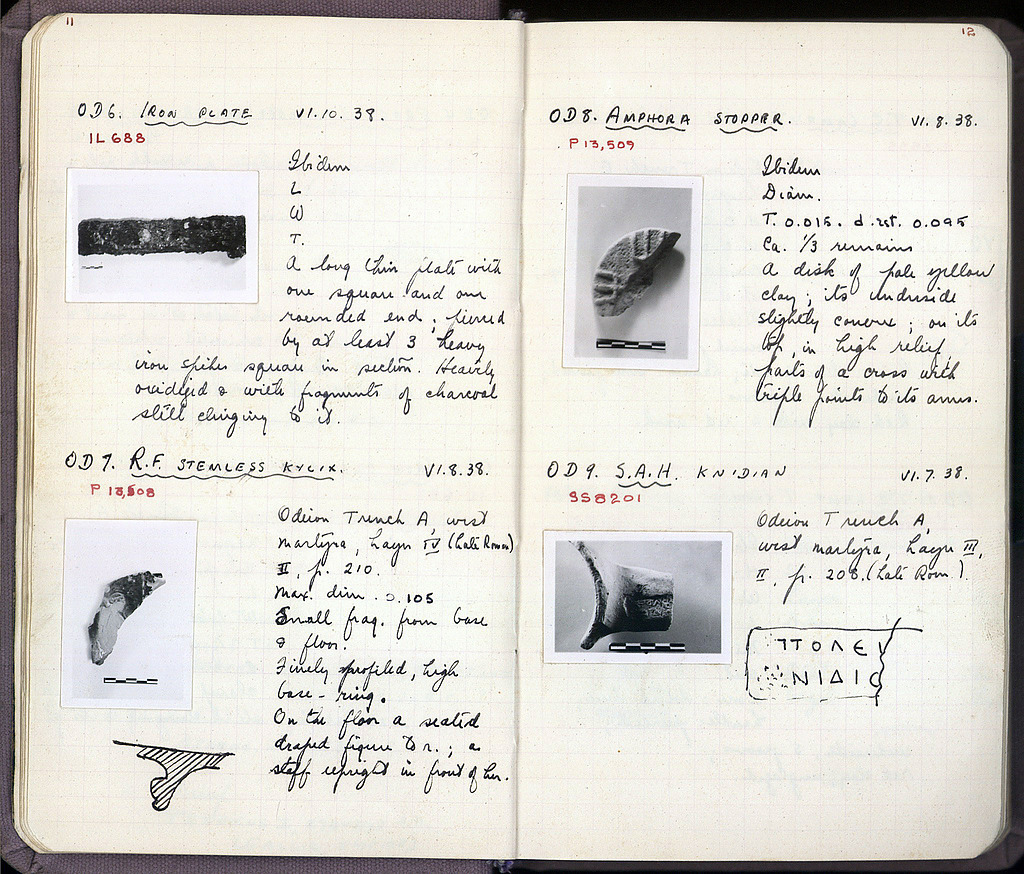 11
OD6. IRON PLATE VI.10.38.
IL 688
Ibidem
L
W
T.
A long thin plate with
one square and one
rounded end; pierced
by at least 3 heavy
iron spikes square in section. Heavily
oxidized & with fragments of charcoal
still clinging to it.
OD7. R.F. STEMLESS KYLIX. VI.8.38.
P 13,508
Odeion Trench A, west
martyra, Layer IV (Late Roman)
II, p. 210.
Max. dim. 0.105
Small frag. from base
& floor.
Finely profiled, high
base-ring.
On the floor a seated
draped figure to r.; a
staff upright in front of her.
12
OD8. AMPHORA STOPPER. VI.8.38.
P 13,509
Ibidem
Diam.
T. 0.015. d. est. 0.095
Ca. 1/3 remains
A disk of pale yellow
clay; its underside
slightly convex; on its
top, in high relief,
parts of a cross with
triple points to its arms.
OD9. S.A.H. KNIDIAN VI.7.38.
SS8201
Odeion Trench A,
west martyra, Layer III,
II, p. 208. (Late Rom.).
ΠΟΛΕΙ
ΝΙΔΙΟ